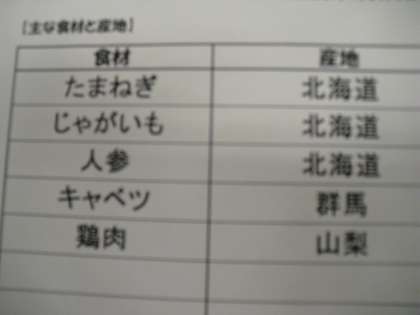 [主な食材と産地]
食材 産地
たまねぎ 北海道
じゃがいも 北海道
人参 北海道
キャベツ 群馬
鶏肉 山梨